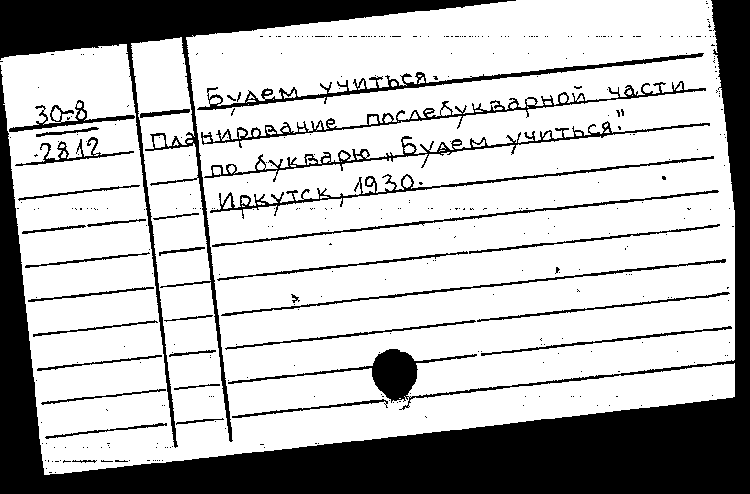 Будем учиться.
30-8
2812
Планирование послебукварной части
по букварю „Будем учиться".
Иркутск, 1930.